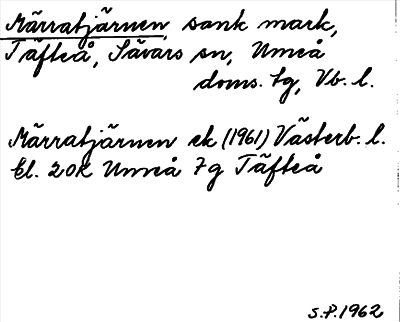 Märratjärnen, sank mark,
Täfteå, Sävars sn, Umeå
doms. tg, Vb. l.
Märratjärnen ek (1961) Västerb. l.
bl. 20K Umeå 7g Täfteå
S.P. 1962